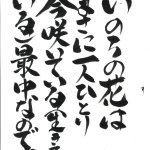 いのちの花は
まさに一人ひとり
今咲いている生きて
いる最中なので